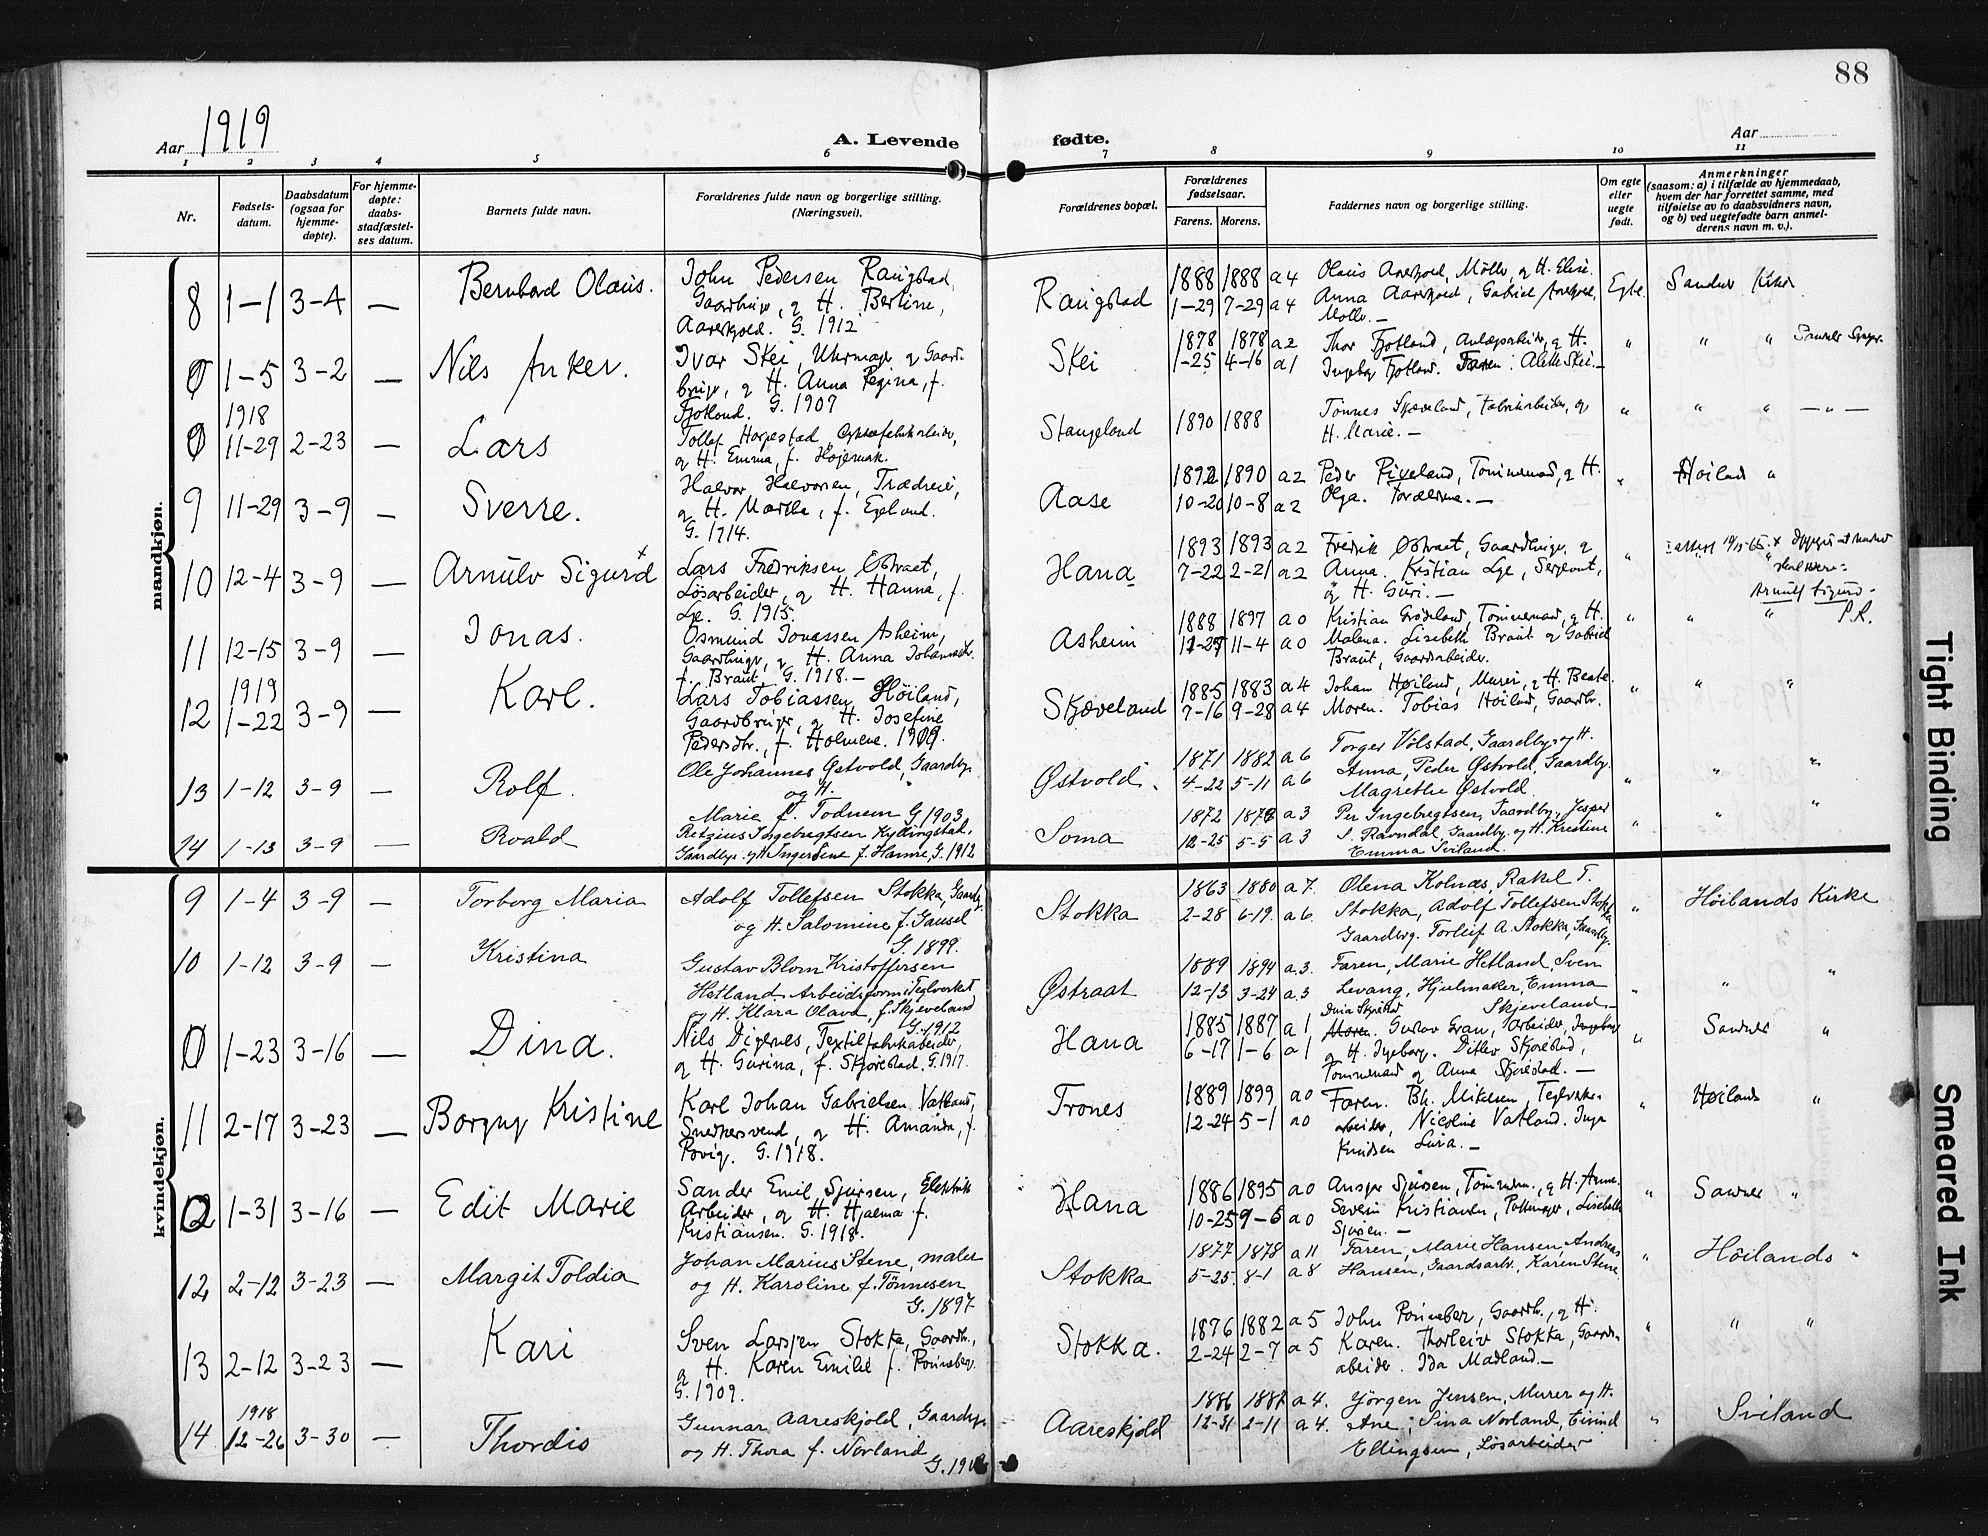 88
Aar 1919
A. Levende
fødte.
Aar
1 2 3 4 5 6 7 8 9 10 11
Nr.
Fødsels-
datum.
Daabsdatum
(ogsaa for
hjemme-
døpte).
For hjemme-
døpte:
daabs-
stadfæstel-
ses datum.
Barnets fulde navn.
Forældrenes fulde navn og borgerlige stilling.
(Næringsvei).
Forældrenes bopæl.
Forældrenes
fødselsaar.
Farens. Morens.
Faddernes navn og borgerlige stilling.
Om egte
eller
uegte
født.
Anmerkninger
(saasom: a) i tilfælde av hjemmedaab,
hvem der har forrettet samme, med
tilføielse av to daabsvidners navn,
og b) ved uegtefødte barn anmel-
derens navn m. v.).
mandkjøn.
8 1-1 3-4 — Bernhard Olaus.
John Pedersen Raugstad,
Gaardbruger, og H. Bertine,
Aareskjold. G. 1912
Raugstad
1888 1888 a 4
1-29 7-29 a 4
Olaus Aareskjold, Møller, og H. Elise.
Anna Aareskjold, Gabriel Aareskjold,
Møller. —
Egte
0 1-5 3-2 — Nils Anker.
Ivar Skei, Uhrmager og Gaard-
bruger, og H. Anna Regina, f.
Fjotland. G. 1907
Skei
1878 1878 a 2
1-25 4-16 a 1
Thor Fjotland, Anlægsarbeider, og H.
Ingeborg Fjotland. Faren. Alette Skei. —
" " "
1918
0 11-29 2-23 — Lars
Tollef Harpestad,
og H. Emma, f. Højemark.
Stangeland
1890 1888
Tønnes Skjæveland, Fabrikarbeider, og
H. Marie. —
" " " — " —
9 11-29 3-9 — Sverre.
Halvor Halvorsen, Trædreier,
og H. Martha, f. Egeland.
G. 1914.
Aase
1892 1890 a 2
10-20 10-8 a 2
Peder Riveland, Tømmermand, og H.
Olga. Forældrene. —
" Høiland "
10 12-4 3-9 — Arnulv Sigurd x
Lars Fredriksen Østraat,
Løsarbeider, og H. Hanna, f.
Lye. G. 1915.
Hana
1893 1893 a 2
7-22 2-21 a 2
Fredrik Østraat, Gaardbruger, og
Anna. Kristian Lye, Sergeant,
og H. Guri. —
"
Arnulf Sigurd -
11 12-15 3-9 — Jonas.
Osmund Jonassen Asheim,
Gaardbruger, og H. Anna
f. Braut. G. 1918. —
Asheim
1888 1897 a 0
11-4 a 0
Kristian Grødeland, Tømmermand, og H.
Malena. Lisebeth Braut og Gabriel
Braut, Gaardsarbeider.
" " "
1919
12 1-22 3-9 — Karl.
Lars Tobiassen Høiland,
Gaardbruger, og H. Josefine
Pedersdtr., f. Holmene. 1909.
Skjæveland
1885 1883 a 4
7-16 9-28 a 4
Johan Høiland, Murer, og H. Beate.
Moren. Tobias Høiland, Gaardbr.
" " "
13 1-12 3-9 — Rolf.
Ole Johannes Østvold, Gaardbr.
og H.
Marie f. Todnem G. 1903
Østvold.
1871 1882 a 6
4-22 5-11 a 6
Torger Vølstad, Gaardbr. og H.
Anna, Peder Østvold, Gaardbr.
Magrethe Østvold.
" " "
14 1-13 3-9 — Roald
Retzius Ingebregtsen Kyllingstad,
Gaardbr. og H. Ingerdine f. Hanne, G. 1912
Soma
1872 a 3
12-25 5-5 a 3
Per Ingebregtsen, Gaardbr. Jesper
S. Ravndal, Gaardbr. og H. Kristine
Emma Sviland.
" " "
kvindekjøn.
9 1-4 3-9 — Torborg Maria
Adolf Tollefsen Stokka, Gaardb.
og H. Salomine f. Gausel
G. 1899.
Stokka
1863 1880 a 7.
2-28 6-19. a 6.
Olena Kolnæs, Rakel T.
Stokka, Adolf Tollefsen Stokka
Gaardbrg. Torleif A. Stokka, Gaardbr.
" Höilands Kirke
10 1-12 3-9 — Kristina
Gustav Blom Kristoffersen
Hetland Arbeidsform. i Teglverket
og H. Klara Olava, f. Skjeveland
G. 1912
Østraat
1889 1894 a. 3.
12-13 3-24 a. 3
Faren, Marie Hetland, Sven
Levang, Hjulmaker, Emma
Skjeveland —
" " "
0 1-23 3-16 — Dina.
Nils Digernes, Textilfabrikarbeider,
og H. Gurina, f. Skjørestad. G. 1917.
Hana
1885 1887 a 1
6-17 1-6 a 1
Dina Skjørestad
Moren. Gustav Grau, Arbeider,
og H. Ingeborg. Ditlev Skjørestad,
Tømmermand og Anna Skjørestad. —
" Sandnes "
11 2-17 3-23 — Borgny Kristine
Karl Johan Gabrielsen Vatland,
Snedkersvend, og H. Amanda, f.
Rovig. G. 1918.
Trones
1889 1899 a 0
12-24 5-1 a 0
Faren. Bh. Mikelsen, Teglværks-
arbeider, Nicoline Vatland. Inga
Knudsen Lura. —
" Høilands "
0 1-31 3-16 — Edit Marie
Sander Emil Sjursen, Elektrik
Arbeider, og H. Hjalma f.
Kristiansen. G. 1918.
Hana
1886 1895 a 0
10-25 9-6 a 0
Ansgar Sjursen, Tømmerm., og H. Anna.
Severin Kristiansen, Pottemager, Lisebeth
Sjursen. —
" Sandnes "
12 2-12 3-23 — Margit Toldia
Johan Marius Stene, maler
og H. Karoline f. Tönnesen
G. 1897
Stokka
1877 1878 a 11
5-25. 8-1 a 8
Faren, Marie Hansen, Andreas
Hansen, Gaardsarb., Karen Stene
" Höilands "
13 2-12 3-23 — Kari
Sven Larsen Stokka, Gaardb.,
og H. Karen Emilie f. Rønneberg.
G. 1909.
Stokka.
1876 1882 a 5
2-24 2-7 a 5
John Rønneberg, Gaardb., og H.
Karen. Thorleiv Stokka, Gaards-
arbeider. Ida Madland. —
" " "
1918
14 12-26 3-30 — Thordis
Gunnar Aareskjold, Gaardbr.
og H. Thora f. Norland
Aareskjold
1886 a 4.
12-31 2-11 a 4.
Jörgen Jensen, Murer og H.
Ane, Sina Norland, Eivind
Ellingsen, Løsarbeider
" Sviland
Tight Binding
Smeared Ink